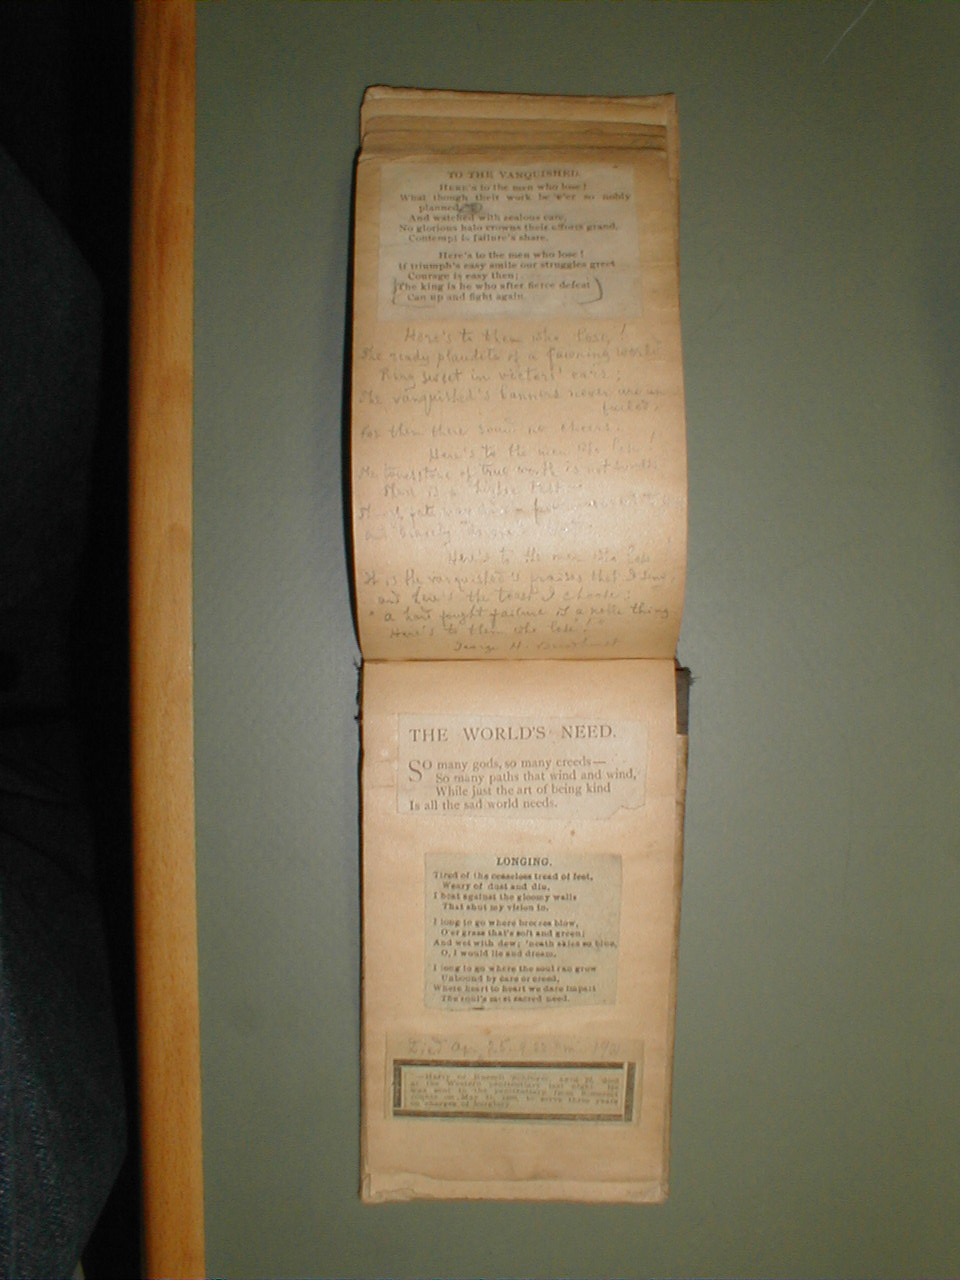 TO THE VANQUISHED.
HERE'S to the men who lose!
What though their work be e'er so nobly
planned,
And watched with zealous care,
No glorious halo crowns their efforts grand,
Contempt is failure's share.
Here's to the men who lose!
If triumph's easy smile our struggles greet
Courage is easy then;
The king is he who after fierce defeat
Can up and fight again.
Here's to them who lose!
The ready plaudits of a fawning world
Ring sweet in victors' ears;
The vanquished's banners never are un-
furled,
For them there sound no cheers.
Here's to the men who lose!
The touchstone of true worth is not
there is a higher test
and bravely
Here's to the men who lose
It is the vanquished's praises that I sing,
and here's the toast I choose:
"a hard fought failure is a noble thing
Here's to them who lose!"
George H.
THE WORLD'S NEED.
So many gods, so many creeds—
So many paths that wind and wind,
While just the art of being kind
Is all the sad world needs.
LONGING.
Tired of the ceaseless tread of feet,
Weary of dust and din,
I beat against the gloomy walls
That shut my vision in.
I long to go where breezes blow,
O'er grass that's soft and green;
And wet with dew; 'neath skies so blue,
O, I would lie and dream.
I long to go where the soul can grow
Unbound by care or creed,
Where heart to heart we dare impart
The soul's most sacred need.
Died Apr 25
—Harry
at the Western penitentiary last night. He
was sent to the penitentiary from Somerset
to serve three years
on charges of burglary.